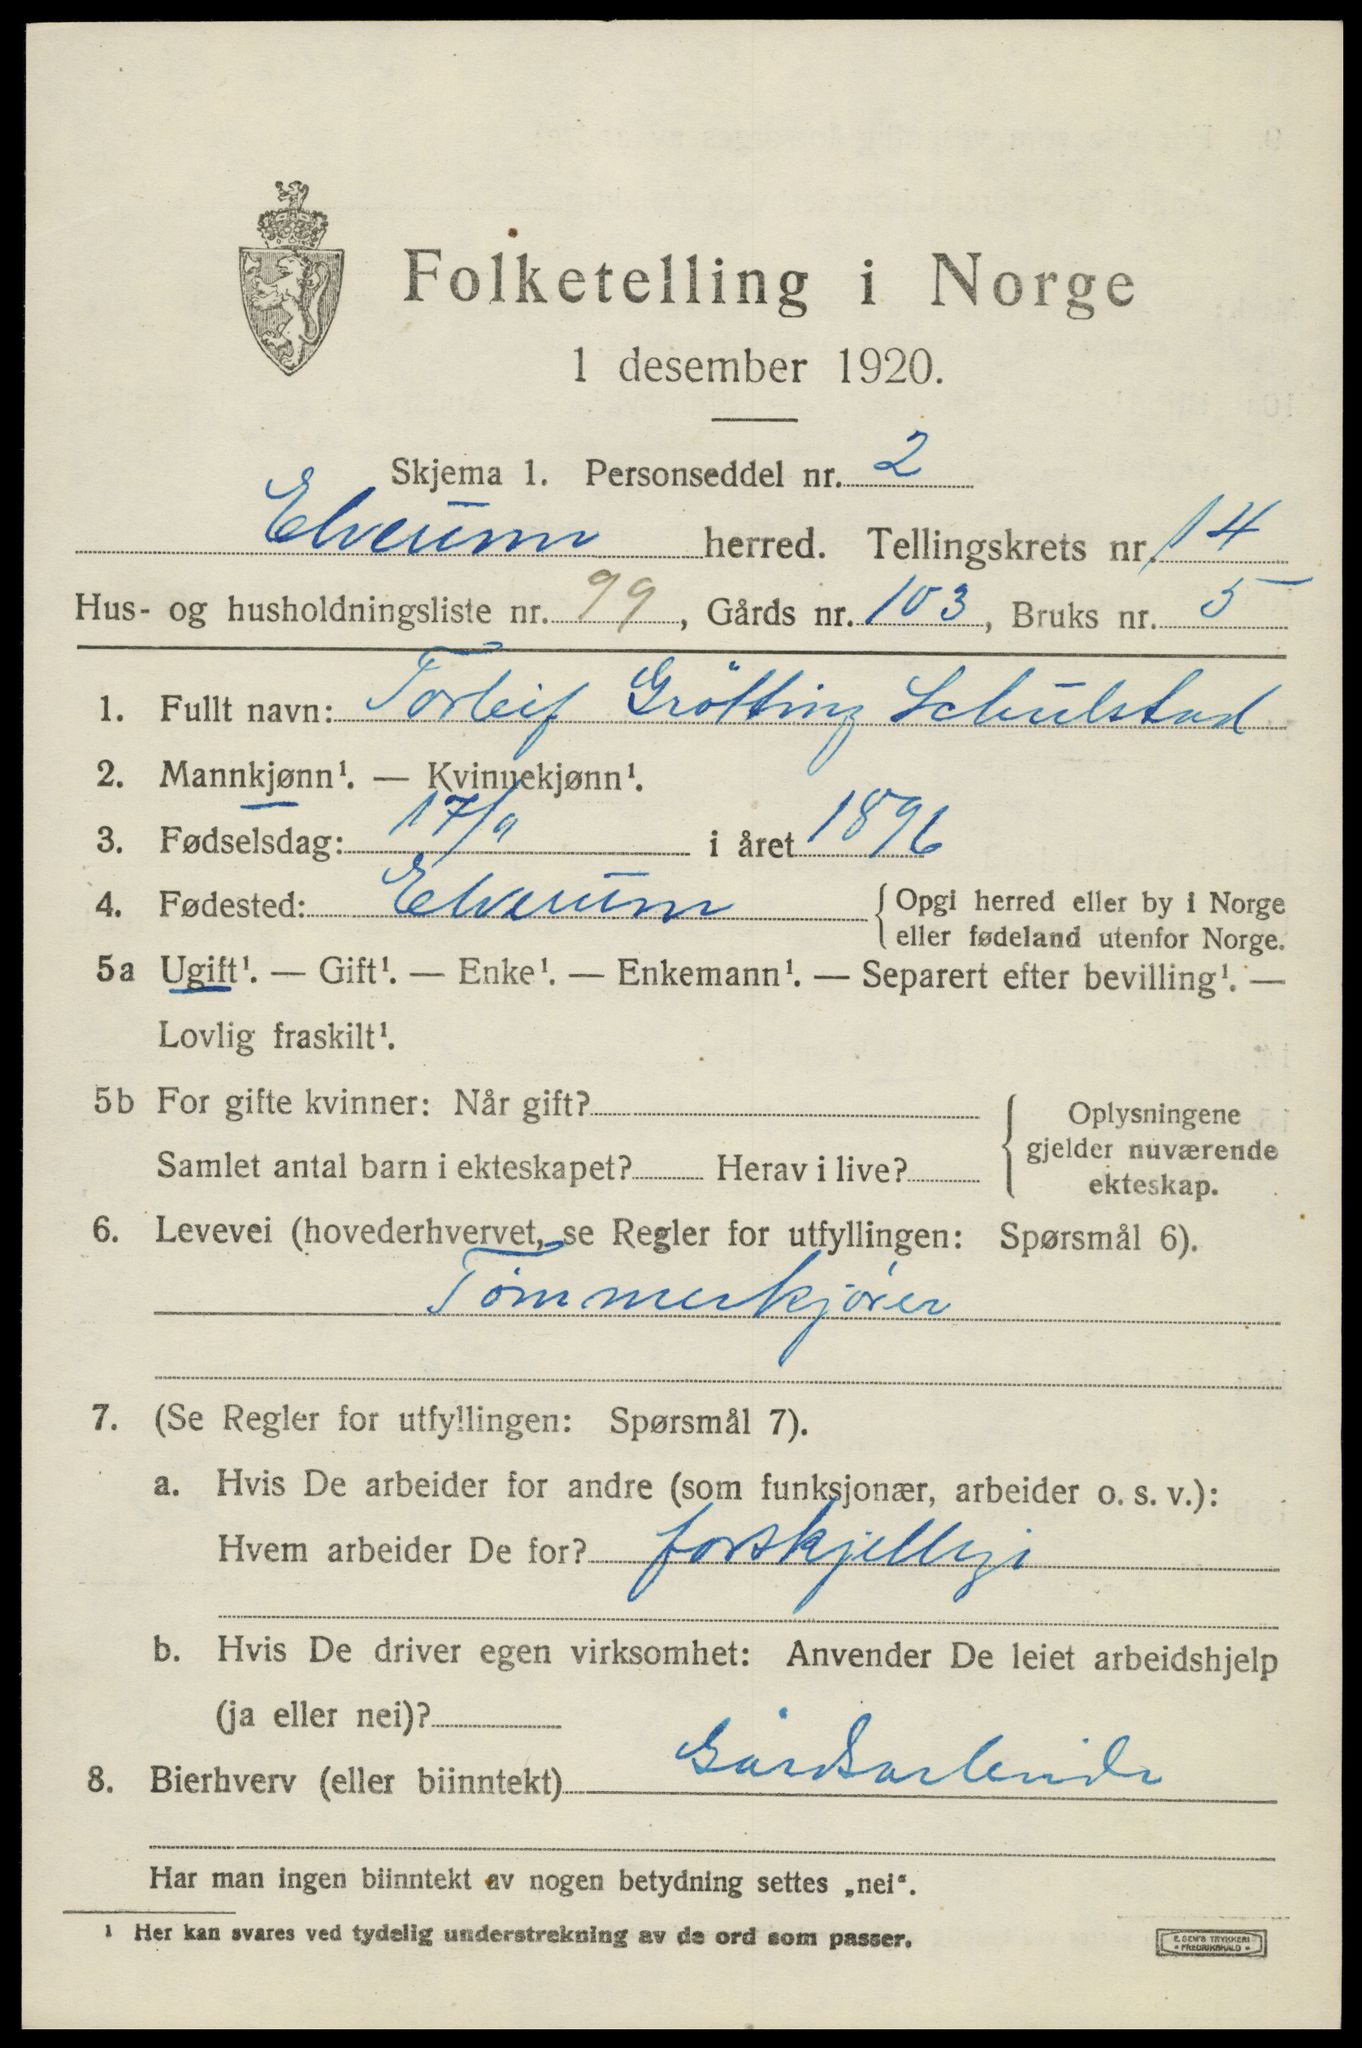 Folketelling i Norge
1 desember 1920.
Skjema 1. Personseddel nr. 2
Elverum herred. Tellingskrets nr. 14
Hus- og husholdningsliste nr. 99, Gårds nr. 103, Bruks nr. 5
1. Fullt navn: Torleif Grötting Schulstad
2. Mannkjønn¹. — Kvinnekjønn¹.
3. Fødselsdag: 17/9 i året 1896
4. Fødested: Elverum {Opgi herred eller by i Norge
eller fødeland utenfor Norge.
5a Ugift¹. — Gift¹. — Enke¹. — Enkemann¹. — Separert efter bevilling¹. —
Lovlig fraskilt¹.
5b For gifte kvinner: Når gift?
Samlet antal barn i ekteskapet? Herav i live?
{Oplysningene
gjelder nuværende
ekteskap.
6. Levevei (hovederhvervet, se Regler for utfyllingen: Spørsmål 6).
Tømmerkjører
7. (Se Regler for utfyllingen: Spørsmål 7).
a. Hvis De arbeider for andre (som funksjonær, arbeider o. s. v.):
Hvem arbeider De for? forskjellige
b. Hvis De driver egen virksomhet: Anvender De leiet arbeidshjelp
(ja eller nei)?
8. Bierhverv (eller biinntekt) Gårdsarbeide
Har man ingen biinntekt av nogen betydning settes „nei“.
¹ Her kan svares ved tydelig understrekning av de ord som passer.
E. SEM'S TRYKKERI
• FREDRIKSHALD •